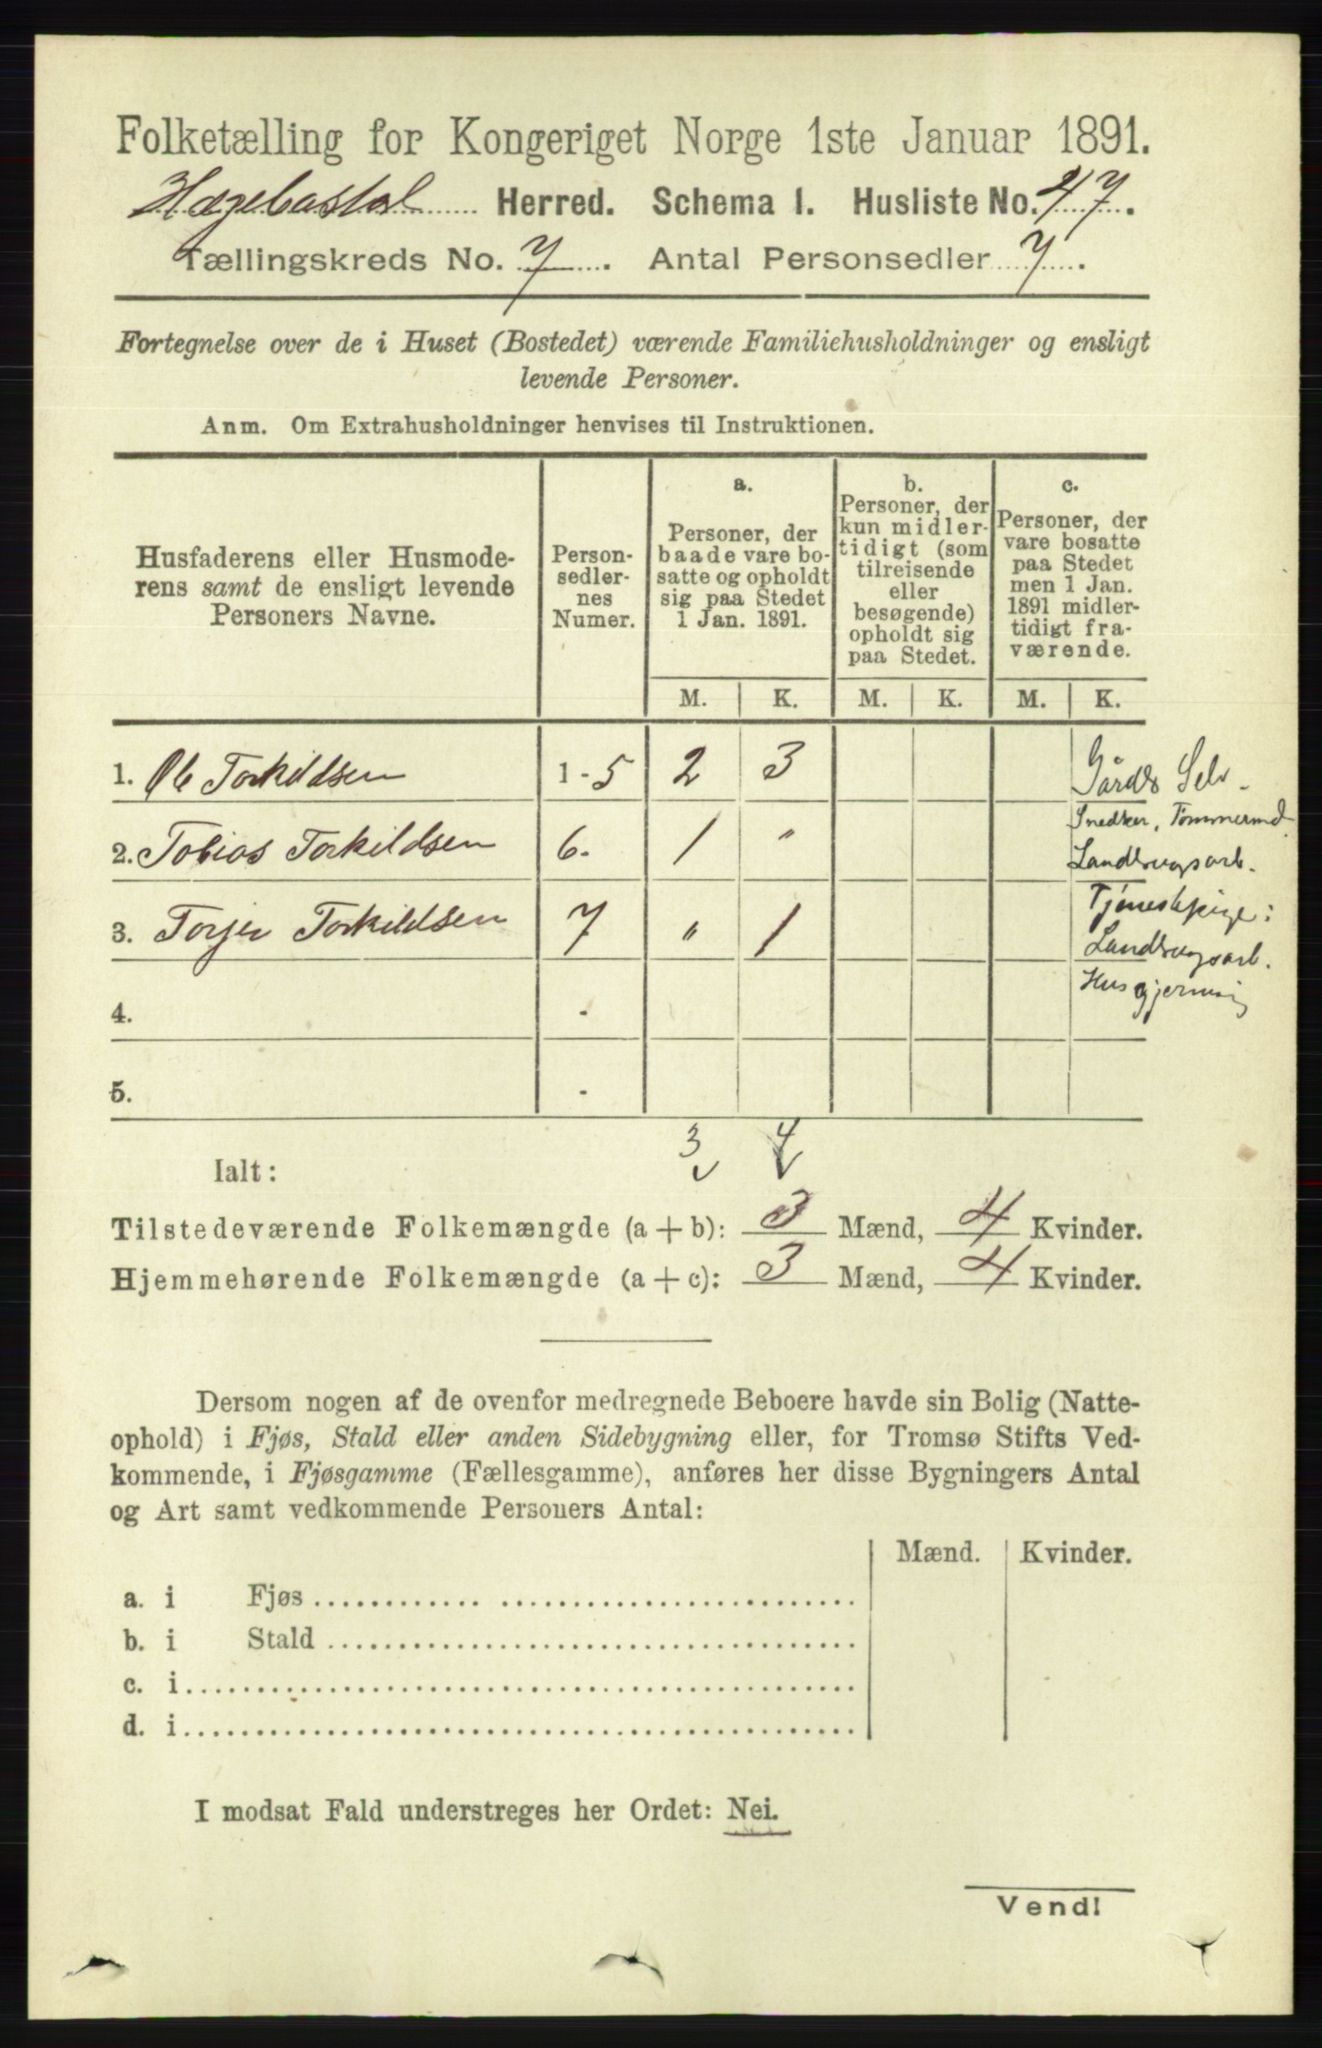 Folketælling for Kongeriget Norge 1ste Januar 1891.
Hægebostad Herred. Schema I. Husliste No. 47.
Tællingskreds No. 7. Antal Personsedler 7.
Fortegnelse over de i Huset (Bostedet) værende Familiehusholdninger og ensligt
levende Personer.
Anm. Om Extrahusholdninger henvises til Instruktionen.
Husfaderens eller Husmode-
rens samt de ensligt levende
Personers Navne.
Person-
sedler-
nes
Numer.
a.
Personer, der
baade vare bo-
satte og opholdt
sig paa Stedet
1 Jan. 1891.
b.
Personer, der
kun midler-
tidigt (som
tilreisende
eller
besøgende)
opholdt sig
paa Stedet.
c.
Personer, der
vare bosatte
paa Stedet
men 1 Jan.
1891 midler-
tidigt fra-
værende.
M. K. M. K. M. K.
1. Ole Torkildsen 1-5 2 3
2. Tobias Torkildsen 6. 1 "
3. Torjer Torkildsen 7 " 1
4. -
5. -
Gårdb Selv.
Snedker, Tømmermd.
Landbrugsarb.
Tjenestepige:
Landbrugsarb.
Husgjerning
3 4
Ialt:
Tilstedeværende Folkemængde (a + b): 3 Mænd, 4 Kvinder.
Hjemmehørende Folkemængde (a + c): 3 Mænd, 4 Kvinder.
Dersom nogen af de ovenfor medregnede Beboere havde sin Bolig (Natte-
ophold) i Fjøs, Stald eller anden Sidebygning eller, for Tromsø Stifts Ved-
kommende, i Fjøsgamme (Fællesgamme), anføres her disse Bygningers Antal
og Art samt vedkommende Personers Antal:
Mænd. Kvinder.
a. i Fjøs
b. i Stald
c. i
d. i
I modsat Fald understreges her Ordet: Nei.
Vend!